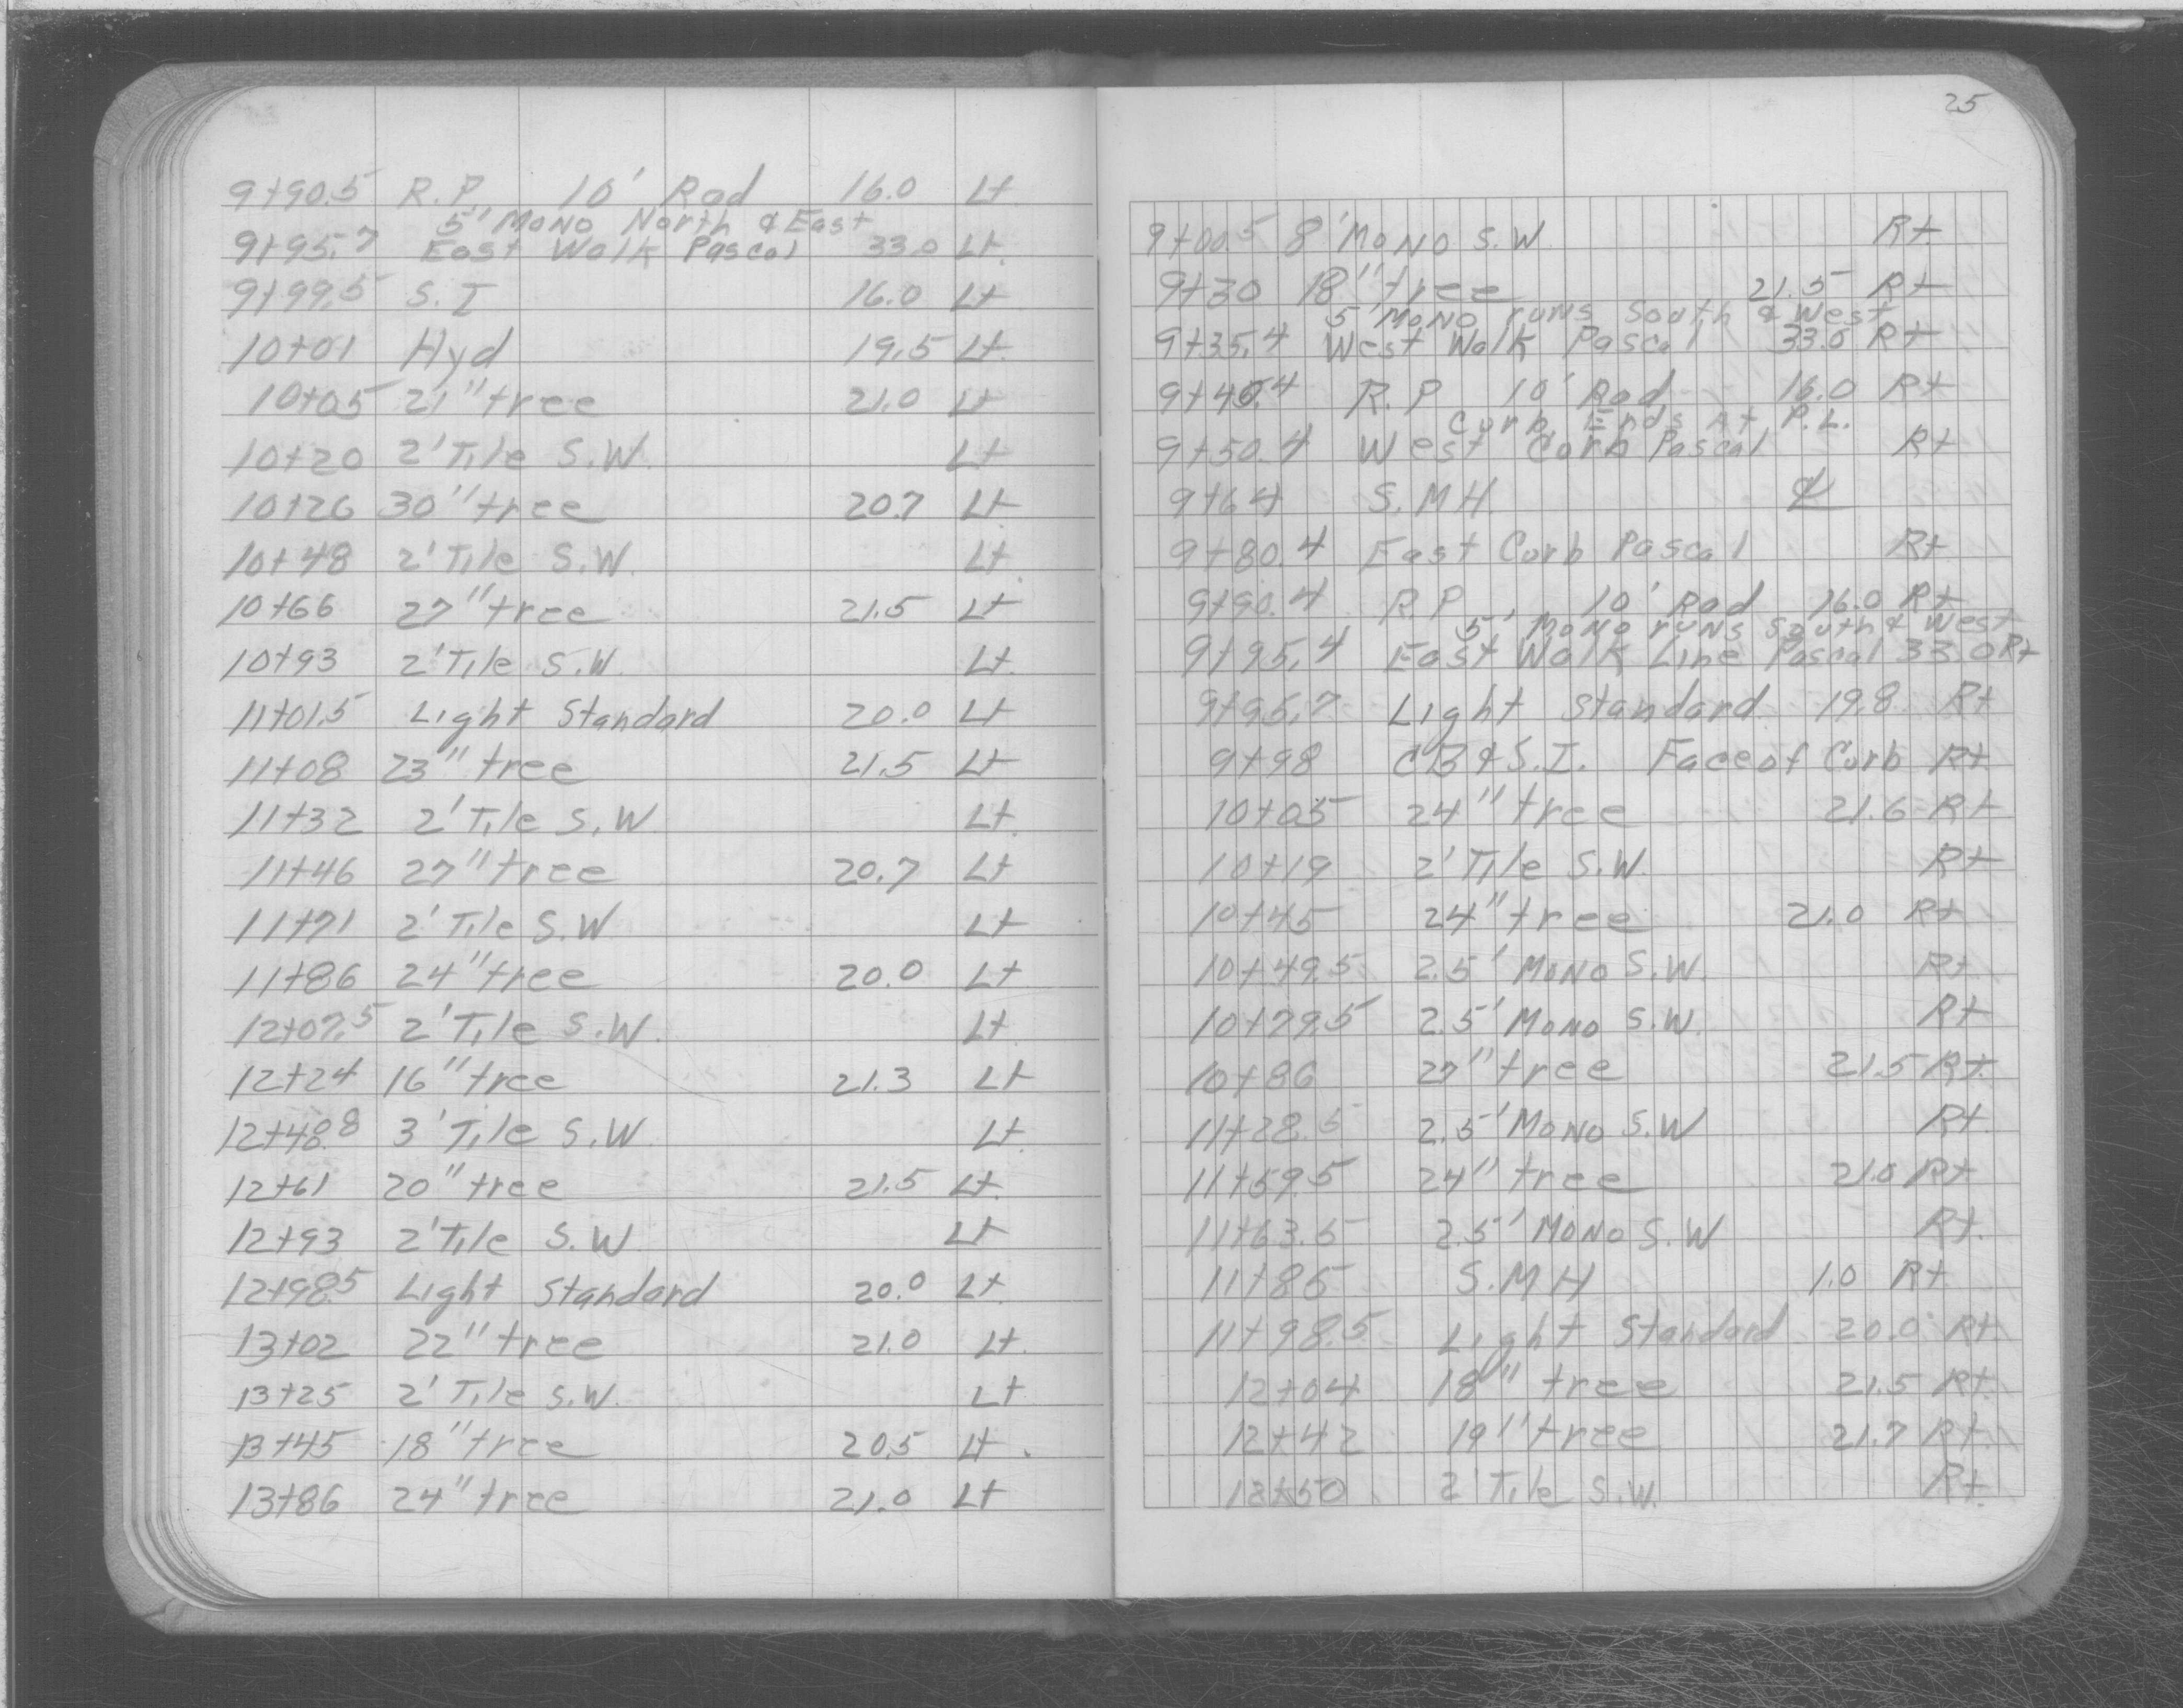 9+90.5 R.P. 10' Rad 16.0 Lt
5' Mono North & East
9+95.7 East Walk Pascal 33.0 Lt.
9+99.5 S.I 16.0 Lt
10+01 Hyd 19.5 Lt.
10+05 21" tree 21.0 Lt
10+20 2' Tile S.W. Lt
10+26 30" tree 20.7 Lt
10+48 2' Tile S.W. Lt.
10+66 27" tree 21.5 Lt
10+93 2' Tile S.W. Lt.
11+01.5 Light Standard 20.0 Lt
11+08 23" tree 21.5 Lt
11+32 2' Tile S.W Lt.
11+46 27" tree 20.7 Lt
11+71 2' Tile S.W Lt
11+86 24" tree 20.0 Lt
12+07.5 2' Tile S.W. Lt.
12+24 16" tree 21.3 Lt
12+48.8 3' Tile S.W Lt.
12+61 20" tree 21.5 Lt.
12+93 2' Tile S.W Lt
12+98.5 Light Standard 20.0 Lt.
13+02 22" tree 21.0 Lt.
13+25 2' Tile S.W. Lt
13+45 18" tree 20.5 Lt.
13+86 24" tree 21.0 Lt
25
9+00.5 8' Mono S.W. Rt
9+30 18" tree 21.5 Rt
5' Mono runs South & West
9+35.4 West Walk Pascal 33.0 Rt
9+40.4 R.P 10' Rad 16.0 Rt
Curb Ends At P.L.
9+50.4 West Curb Pascal Rt
9+64 S.M.H. ℄
9+80.4 East Curb Pascal Rt
9+90.4 R P 10' Rad 16.0 Rt
5' Mono runs South & West
9+95.4 East Walk Line Pascal 33.0 Rt
9+95.7 Light Standard 19.8 Rt
9+98 CB & S.I. Face of Curb Rt
10+05 24" tree 21.6 Rt
10+19 2' Tile S.W. Rt
10+45 24" tree 21.0 Rt
10+49.5 2.5' Mono S.W. Rt
10+79.5 2.5' Mono S.W. Rt
10+86 27" tree 21.5 Rt.
11+28.5 2.5' Mono S.W Rt.
11+59.5 24" tree 21.0 Rt
11+63.5 2.5' Mono S.W Rt.
11+85 S.M H 1.0 Rt
11+98.5 Light Standard 20.0 Rt
12+04 18" tree 21.5 Rt.
12+42 19" tree 21.7 Rt.
2' Tile S.W. Rt.